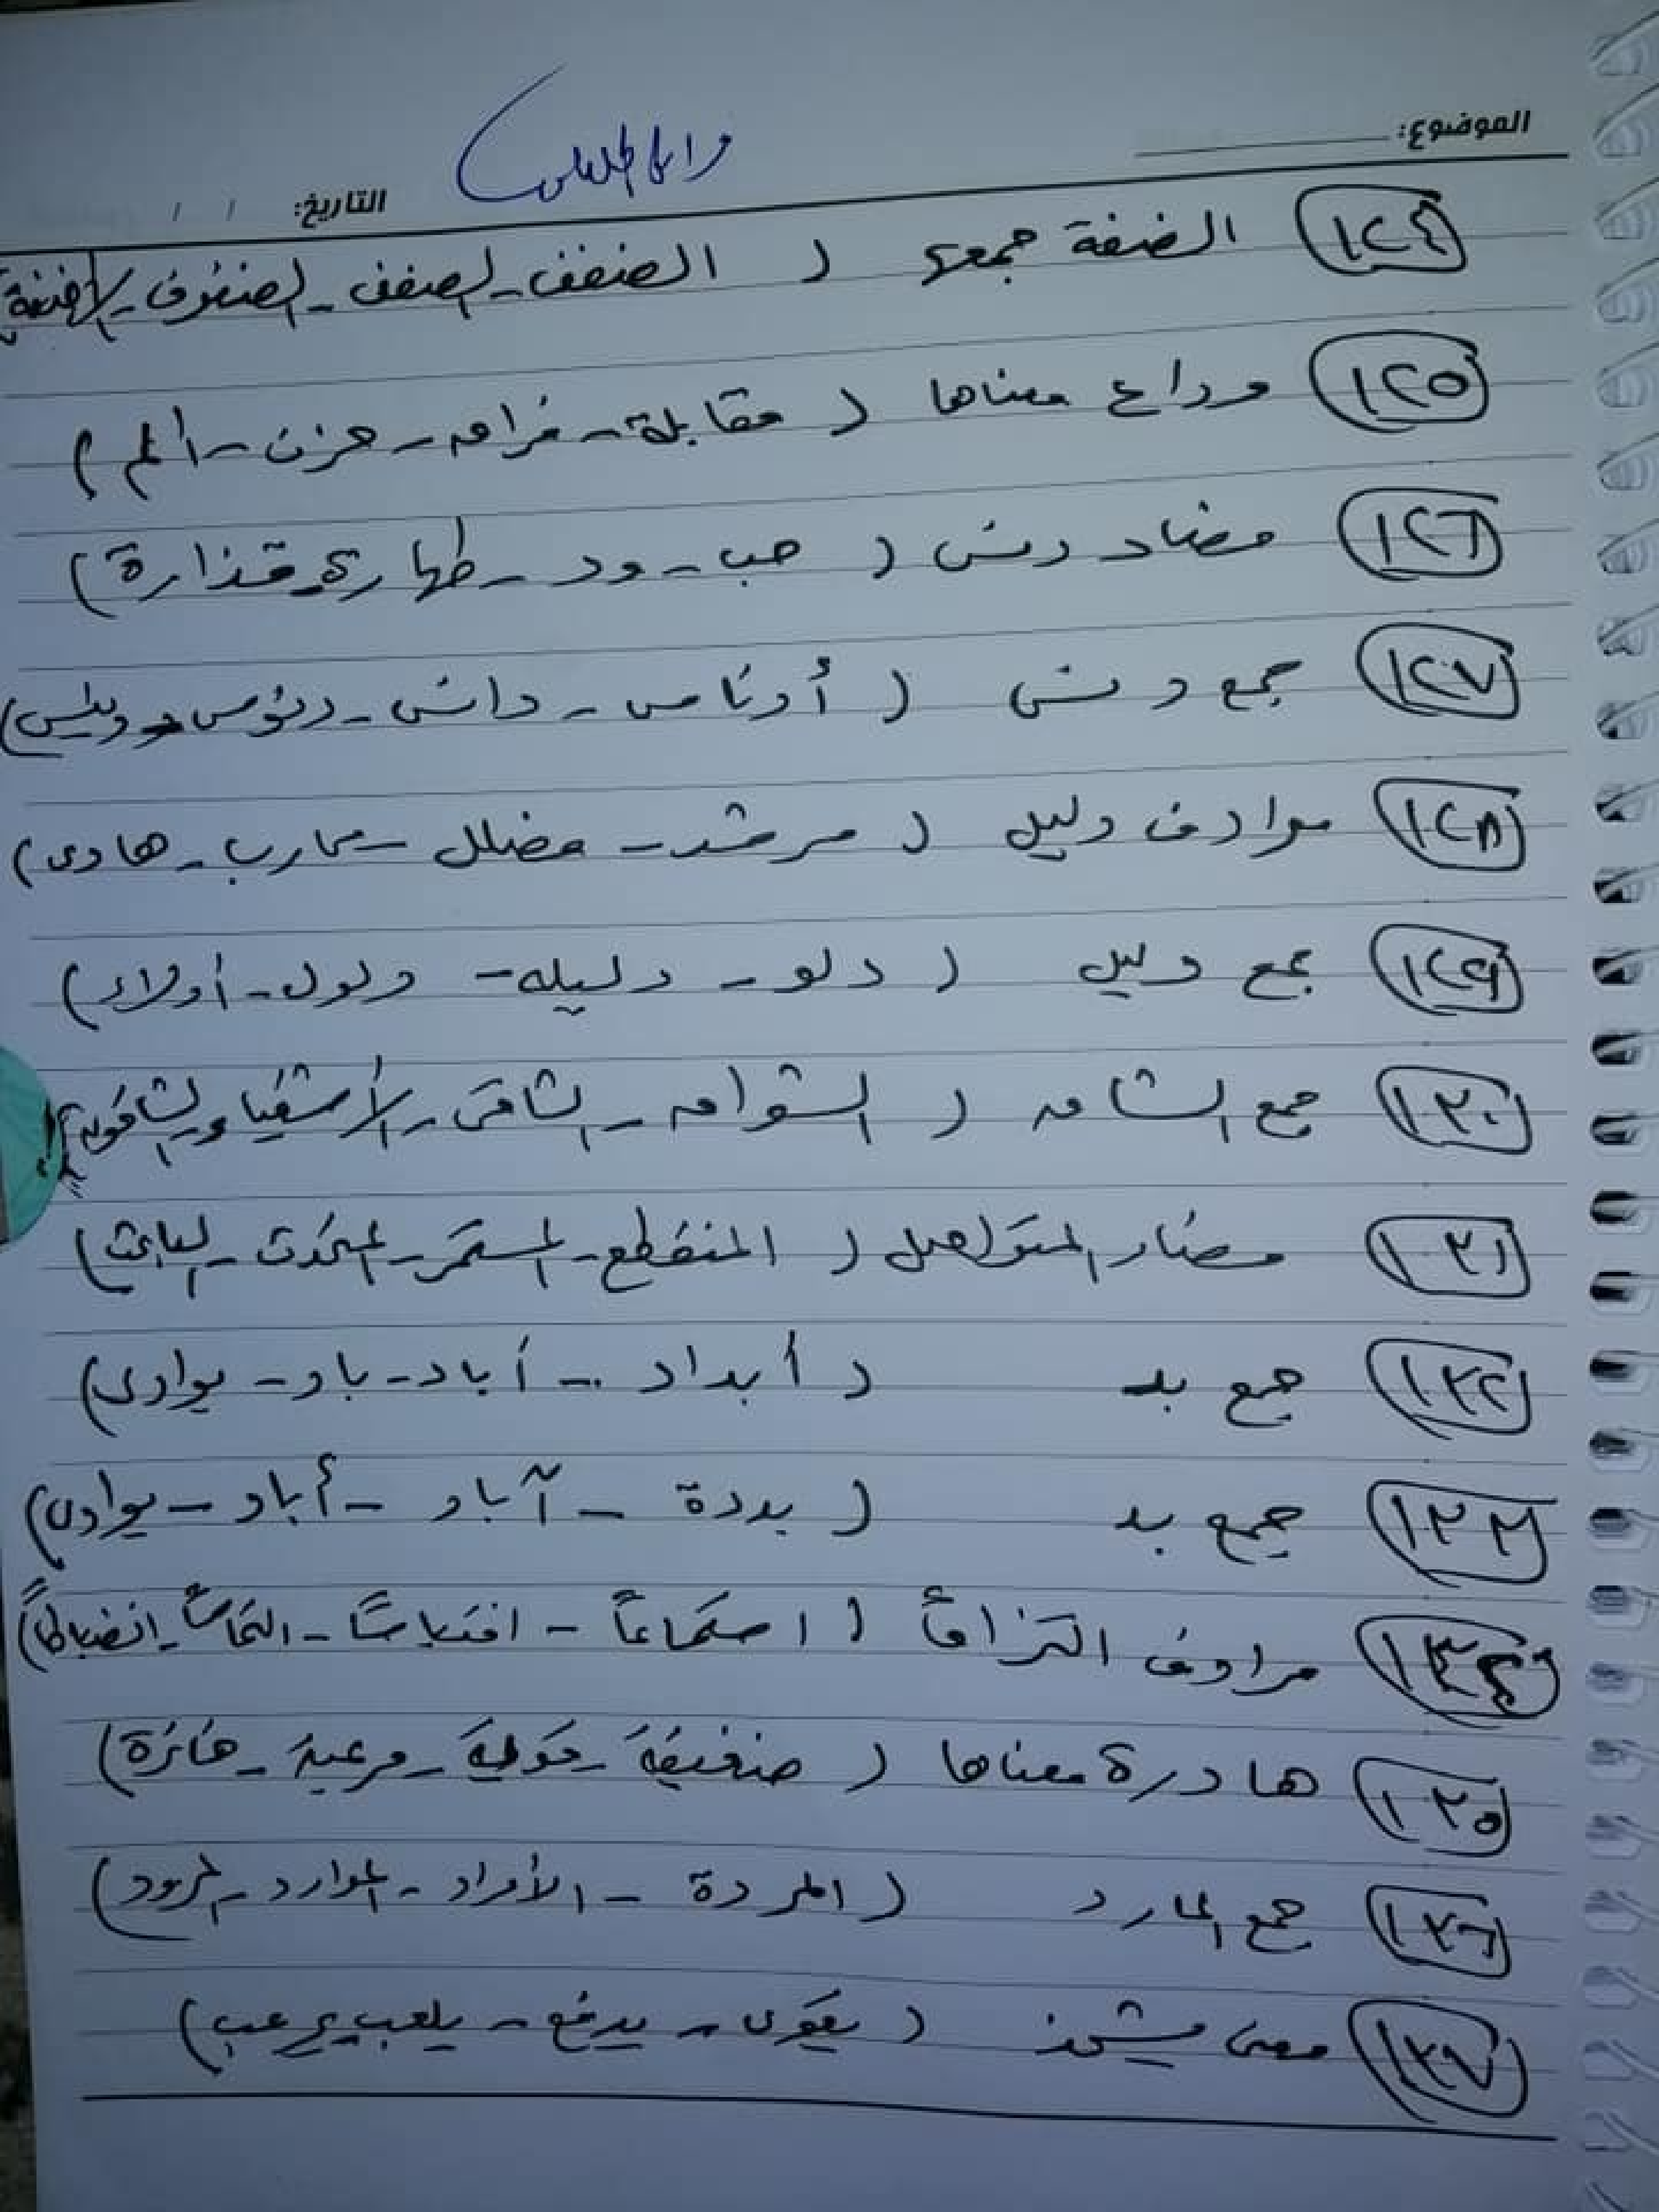 الموضوع:
التاريخ: / /
١٢٤ الضفة جمعها ( الضفف - الضفف - الضفوف - الأضفة )
١٢٥ وداع معناها ( مقابلة - فراق - حزن - ألم )
١٢٦ مضاد دنس ( حب - ود - طهارة - قذارة )
١٢٧ جمع دنس ( أدناس - دانس - دنوس - دنيس )
١٢٨ مرادف دليل ( مرشد - مضلل - محارب - هادى )
١٢٩ جمع دليل ( دلو - دليله - دلول - أدلاء )
١٣٠ جمع الشاق ( الشواق - الشاقى - الأشقياء - الشاقون )
١٣١ مضاد المتواصل ( المنقطع - المستمر - المتحدث - الباحث )
١٣٢ جمع بلد ( أبداد - أباد - باد - بوادى )
١٣٣ جمع بد ( بددة - آباد - أباد - بوادى )
١٣٤ مرادف التزاماً ( استماعاً - اقتباساً - التماساً - انضباطاً )
١٣٥ هادرة معناها ( ضعيفة - قوية - مرعبة - حائرة )
١٣٦ جمع المارد ( المردة - الأمراد - الموارد - المرود )
١٣٧ معنى يشحذ ( يقوى - يدفع - يلعب - يرعب )